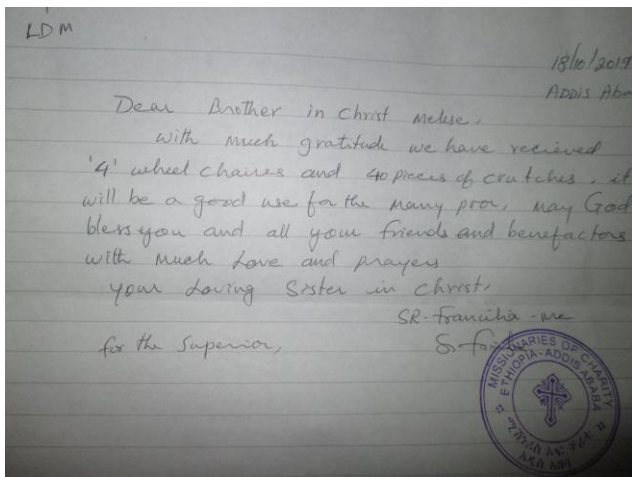 LDM
18/10/2019
ADDIS Aba
Dear Brother in Christ Melese.
with much gratitude we have recieved
'4' wheel chaires and 40 pieces of crutches. it
will be a good use for the many pror, may God
bless you and all your friends and benefactors
with much Love and prayers
your Loving Sister in Christ,
SR. Francilia - mc
for the Superior,
MISSIONARIES OF CHARITY
ETHIOPIA - ADDIS ABABA
አዲስ አበባ